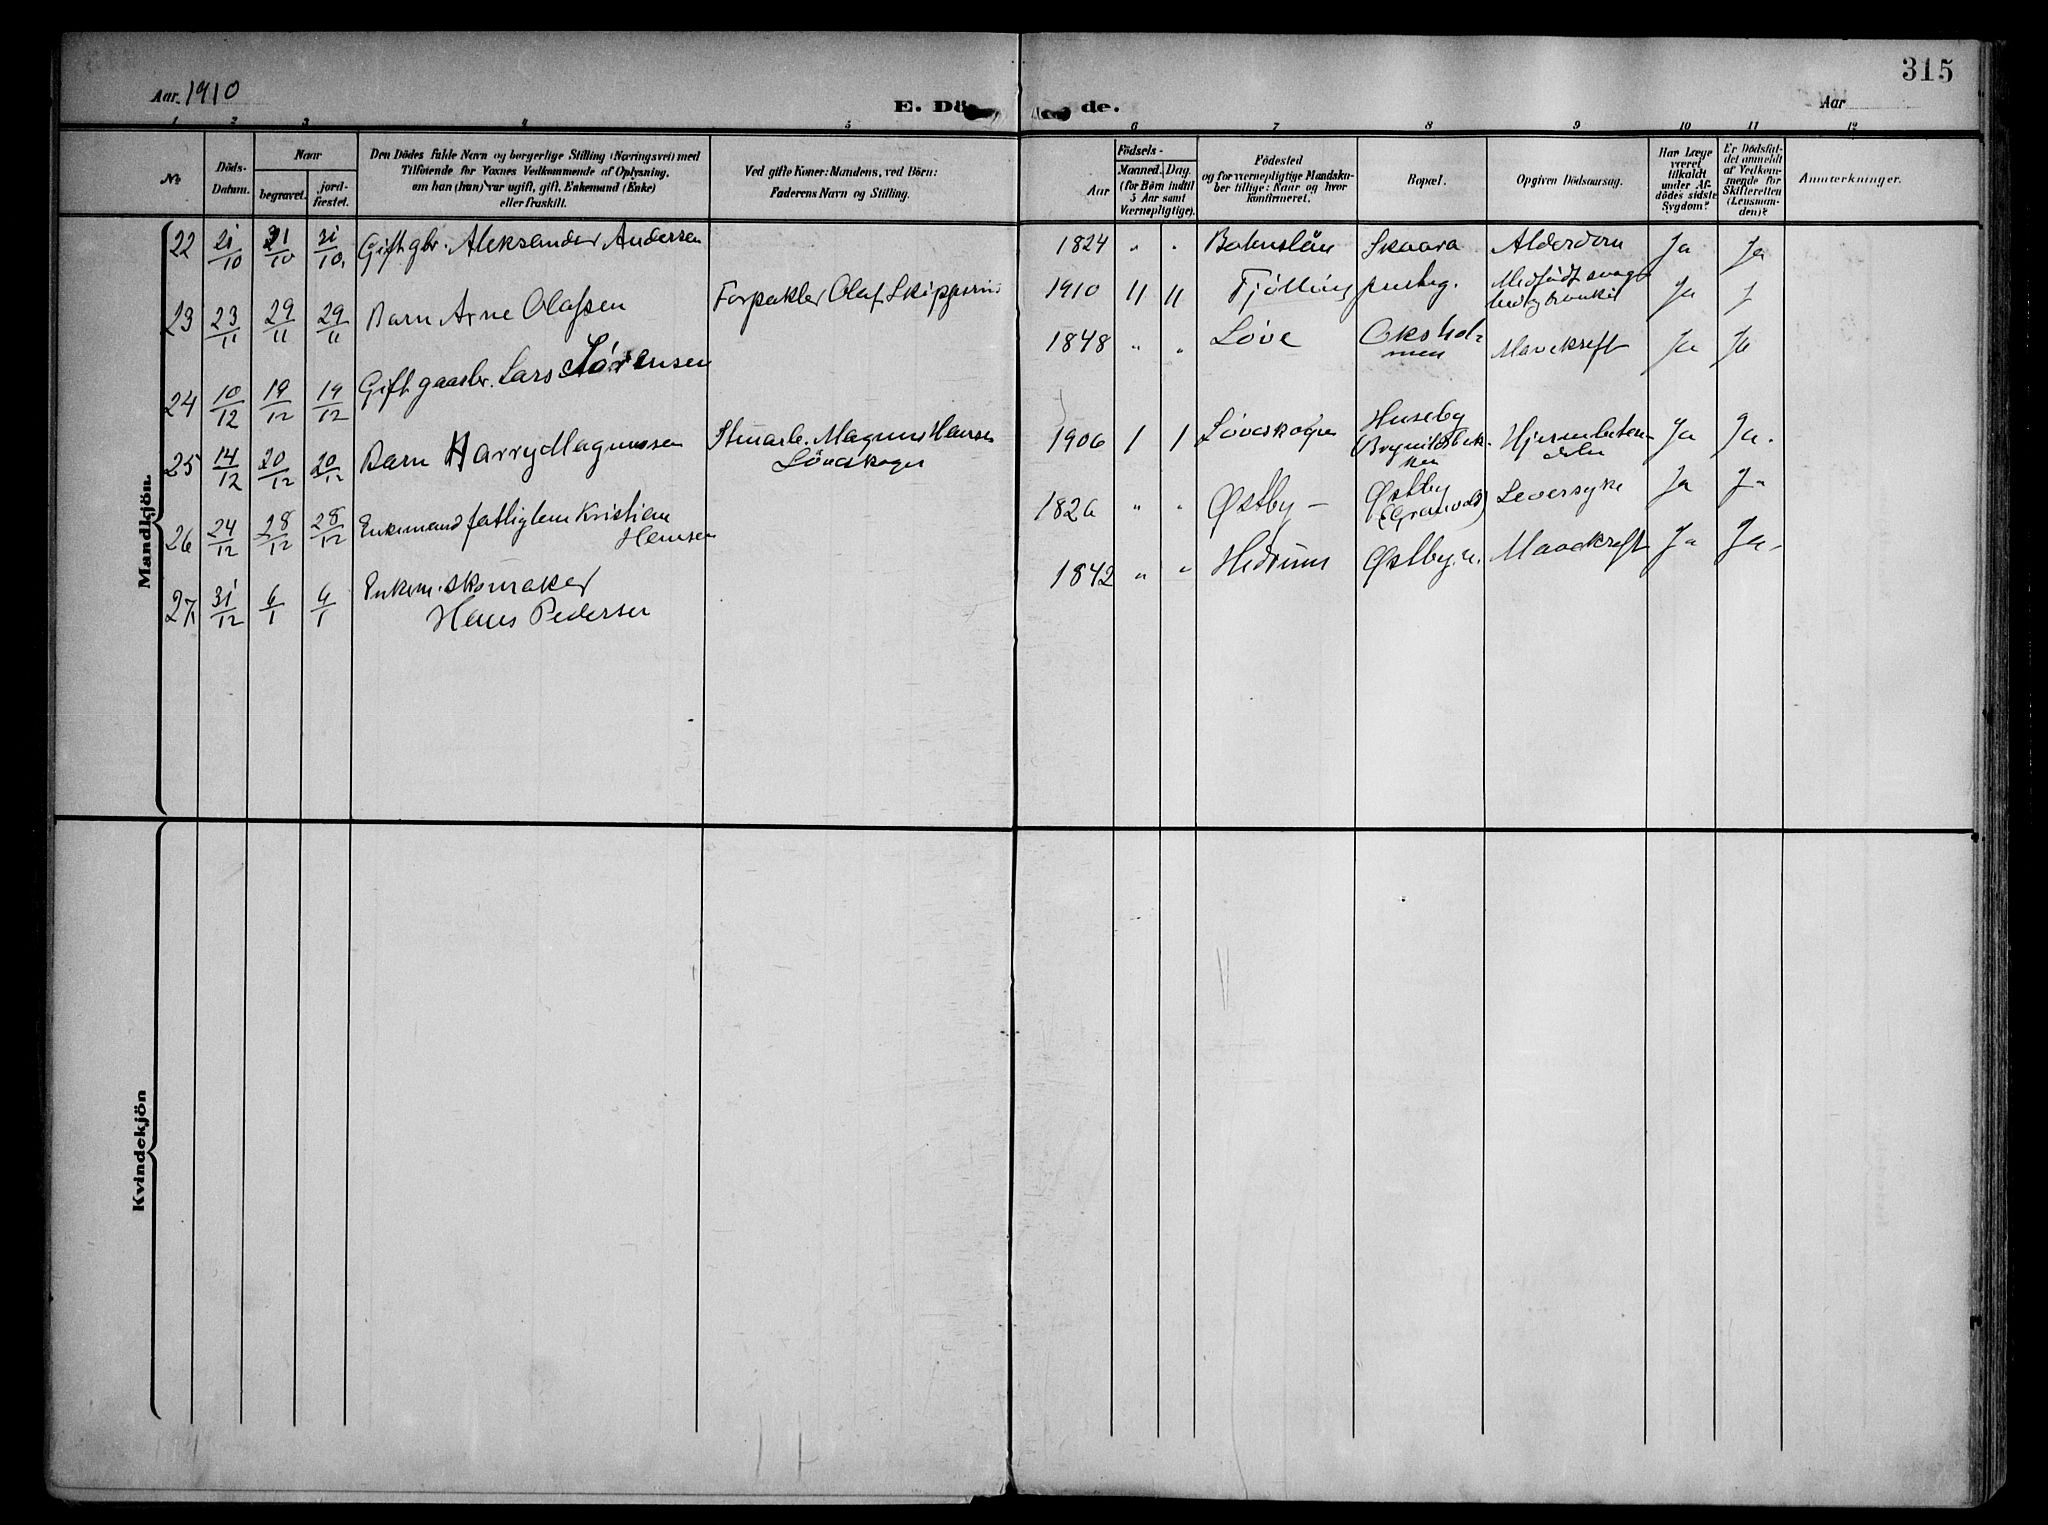 315
Aar 1910
E. Dö de.
Aar
1 2 3 4 5 6 7 8 9 10 11 12
Nr.
Döds-
Datum.
Naar
begravet.
jord-
fæstet.
Den Dödes fulde Navn og borgerlige Stilling (Næringsvei) med
Tilföiende for Voxnes Vedkommende af Oplysning,
om han (hun) var ugift, gift, Enkemand (Enke)
eller fraskilt.
Ved gifte Koner: Mandens, ved Börn:
Faderens Navn og Stilling.
Födsels-
Aar
Maaned.
Dag.
(for Börn indtil
5 Aar samt
Værnepligtige).
Födested
og for værnepligtige Mandska-
ber tillige: Naar og hvor
konfirmeret.
Bopæl.
Opgiven Dödsaarsag.
Har Læge
været
tilkaldt
under Af-
dödes sidste
Sygdom?
Er Dödsfal-
det anmeldt
af Vedkom-
mende for
Skifteretten
(Lensman-
den)?
Anmærkninger.
Mandkjön.
22 21/10 31/10 31/10. Gift gbr. Aleksander Andersen 1824 " " Skaara Alderdom Ja Ja
23 23/11 29/11 29/11 Barn Arne Olafsen Forpakter Olaf 1910 11 11 Tjølling presteg. Medfødt svag-
Ja J
24 10/12 19/12 19/12 Gift gaardbr. Lars Sørensen 1848 " " Løve Okshol-
men Mavekreft Ja Ja
25 14/12 20/12 20/12 Barn Harry Magnussen Stenarb. Magnus Hansen
Løveskogen 1906 1 1 Løveskogen Huseby
Brynildsbek-
ken Hjernebeten-
delse Ja Ja.
26 24/12 28/12 28/12 Enkemand fattiglem Kristian
Hansen 1826 " " Østby – Østby
(Granvold) Leversyke Ja Ja
27. 31/12 6/1 6/1 Enkem. skomaker
Hans Pedersen 1842 " " Hedrum Østby. Mavekreft Ja Ja
Kvindekjön